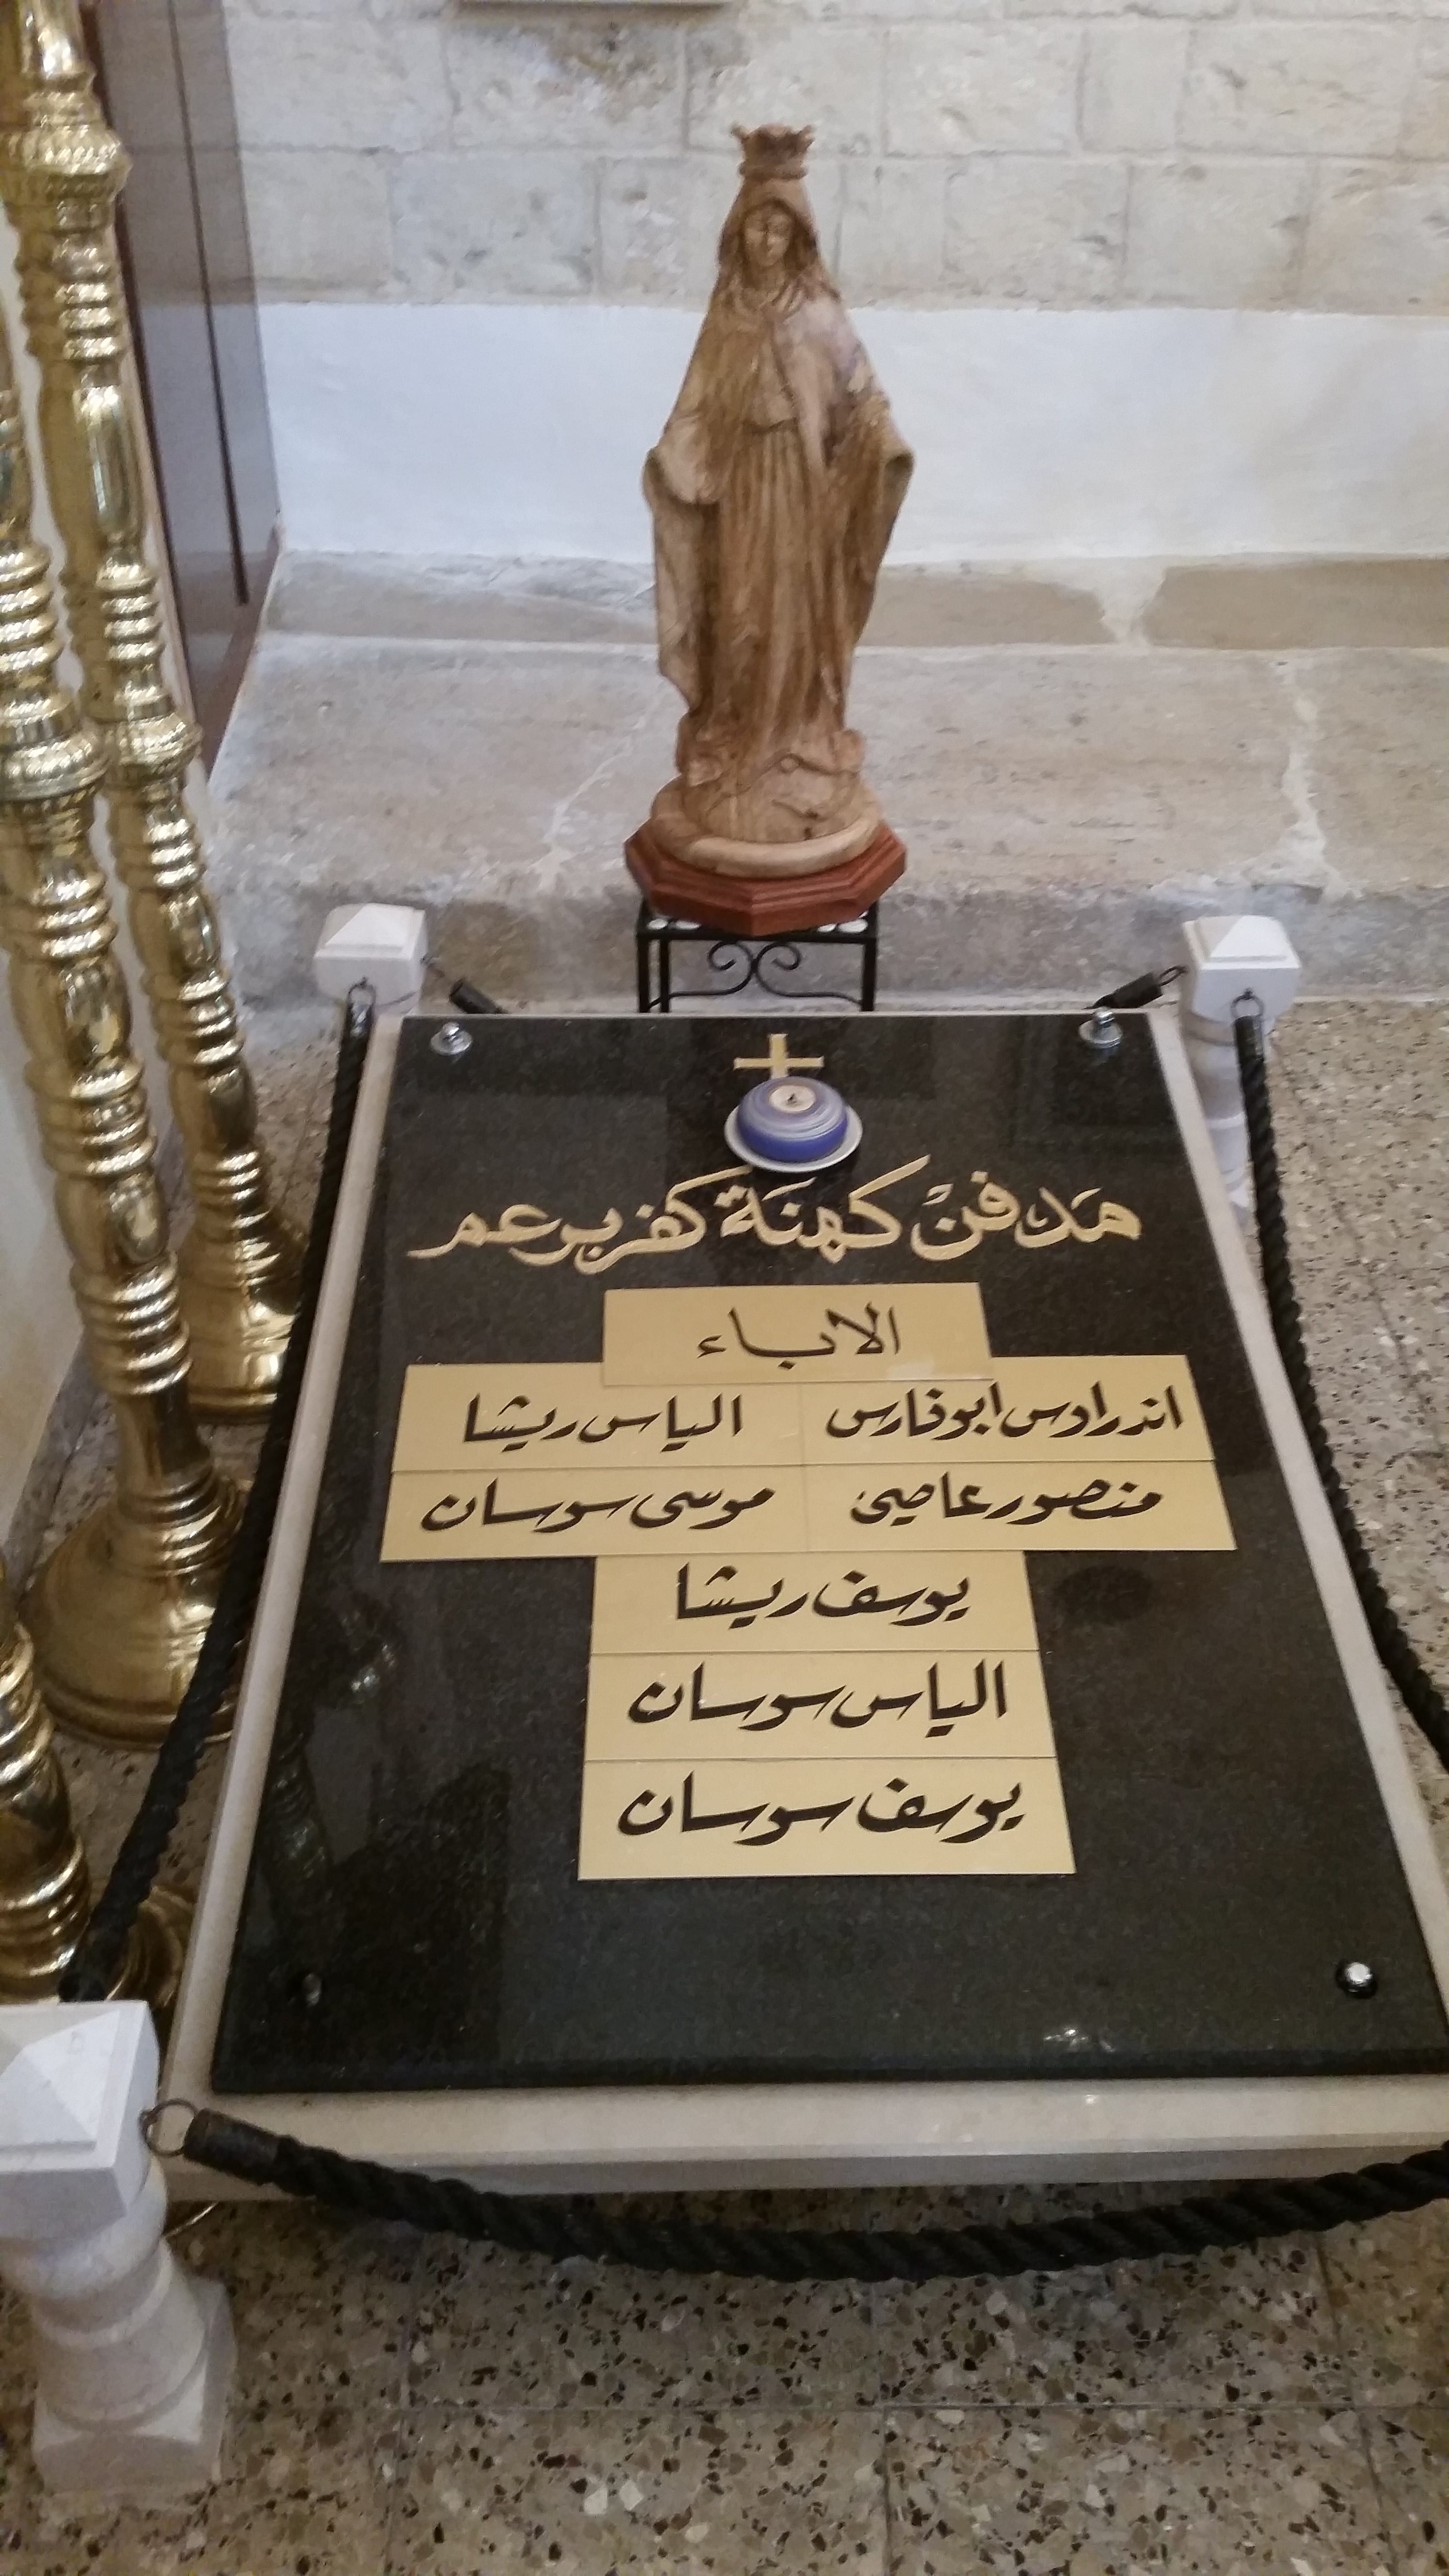 مَدفنْ كهنَة كفربرعم
الاباء
اندراوس ابوفارس الياس ريشا
منصور عاصي موسى سوسان
يوسف ريشا
الياس سوسان
يوسف سوسان